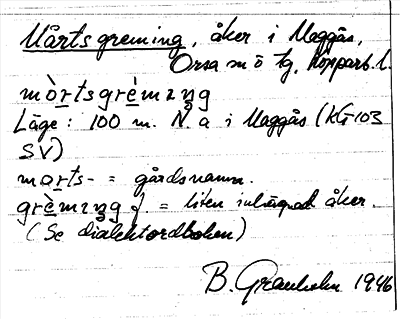 Mårtsgreming, åker i Maggås,
Orsa sn ö tg, Kopparb. l.
mòrtsgrèmıŋg
Läge: 100 m. N. a i Maggås (KG-103
SV)
marts- = gårdsnamn.
grèmıŋg f. = liten inhägnad åker.
(Se dialektordboken)
B. Granholm 1946